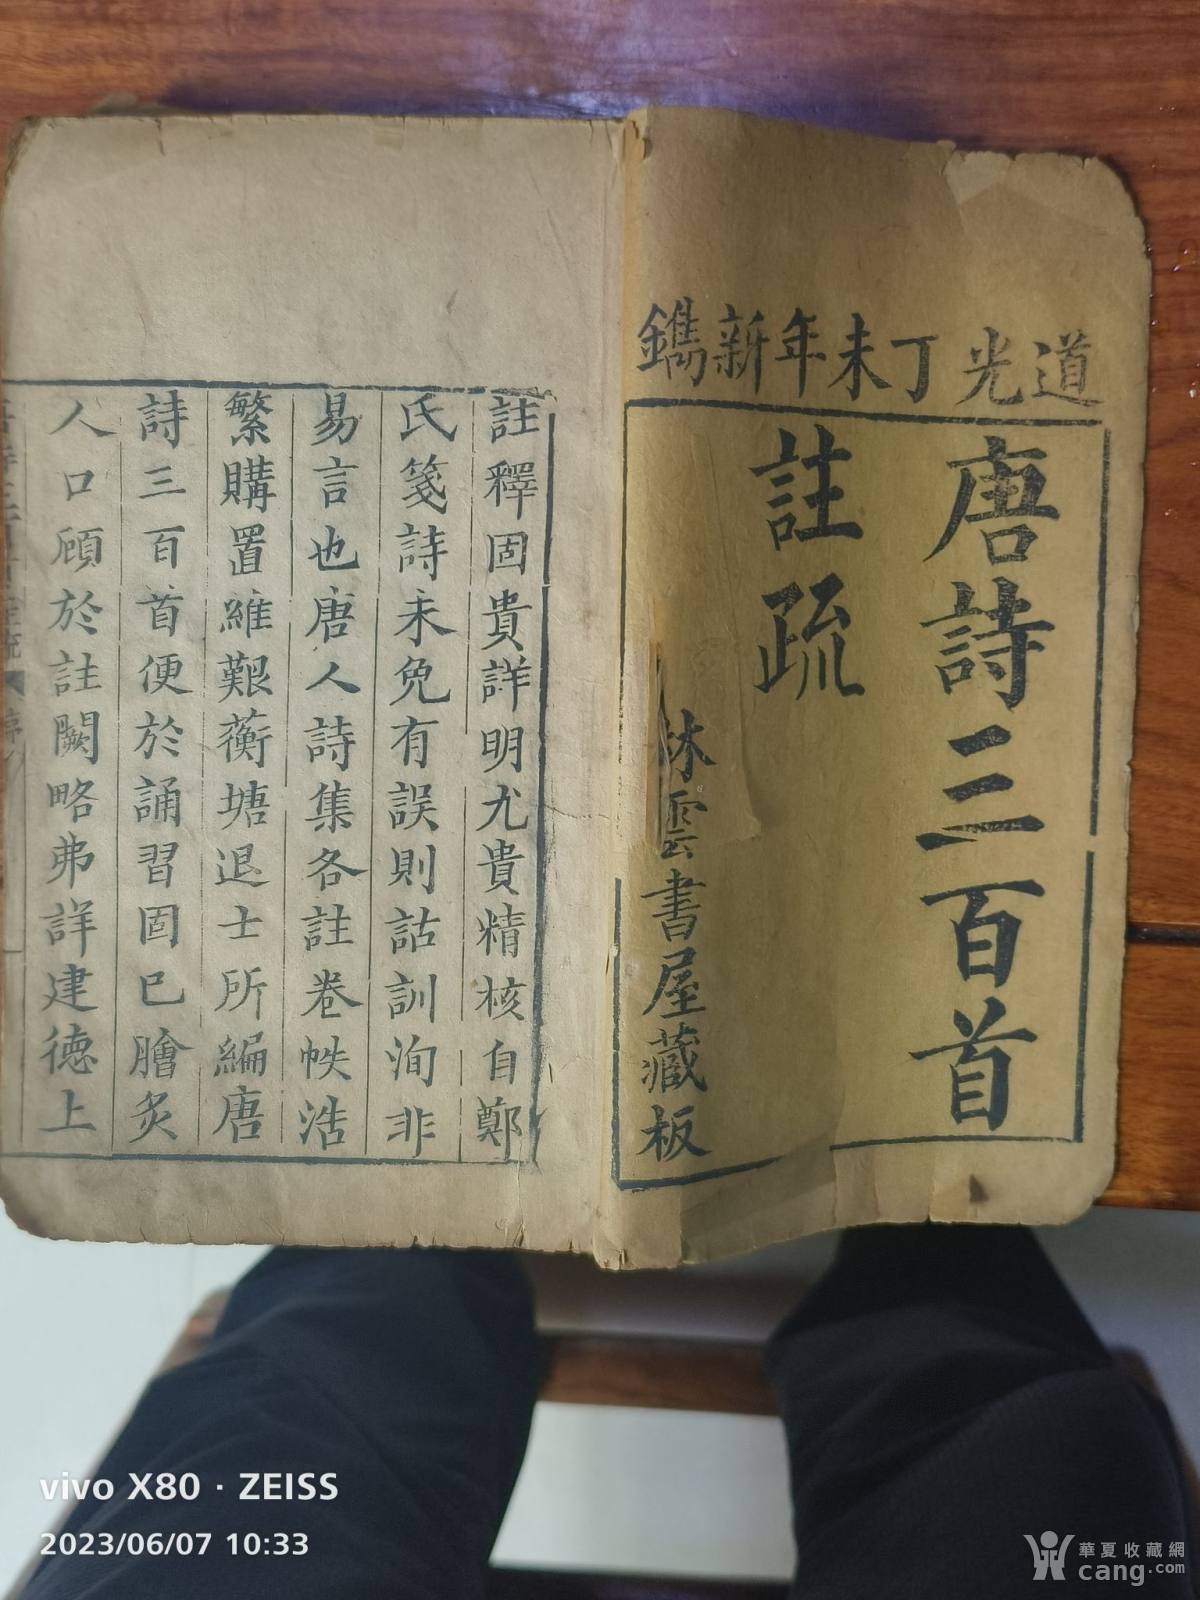 道光丁未年新鐫
唐詩三百首
註疏
林雲書屋藏板
註釋固貴詳明尤貴精核自鄭
氏箋詩未免有誤則詁訓洵非
易言也唐人詩集各註卷帙浩
繁購置維艱蘅塘退士所編唐
詩三百首便於誦習固已膾炙
人口顧於註闕略弗詳建德上
vivo X80 · ZEISS
2023/06/07 10:33
華夏收藏網
cang.com